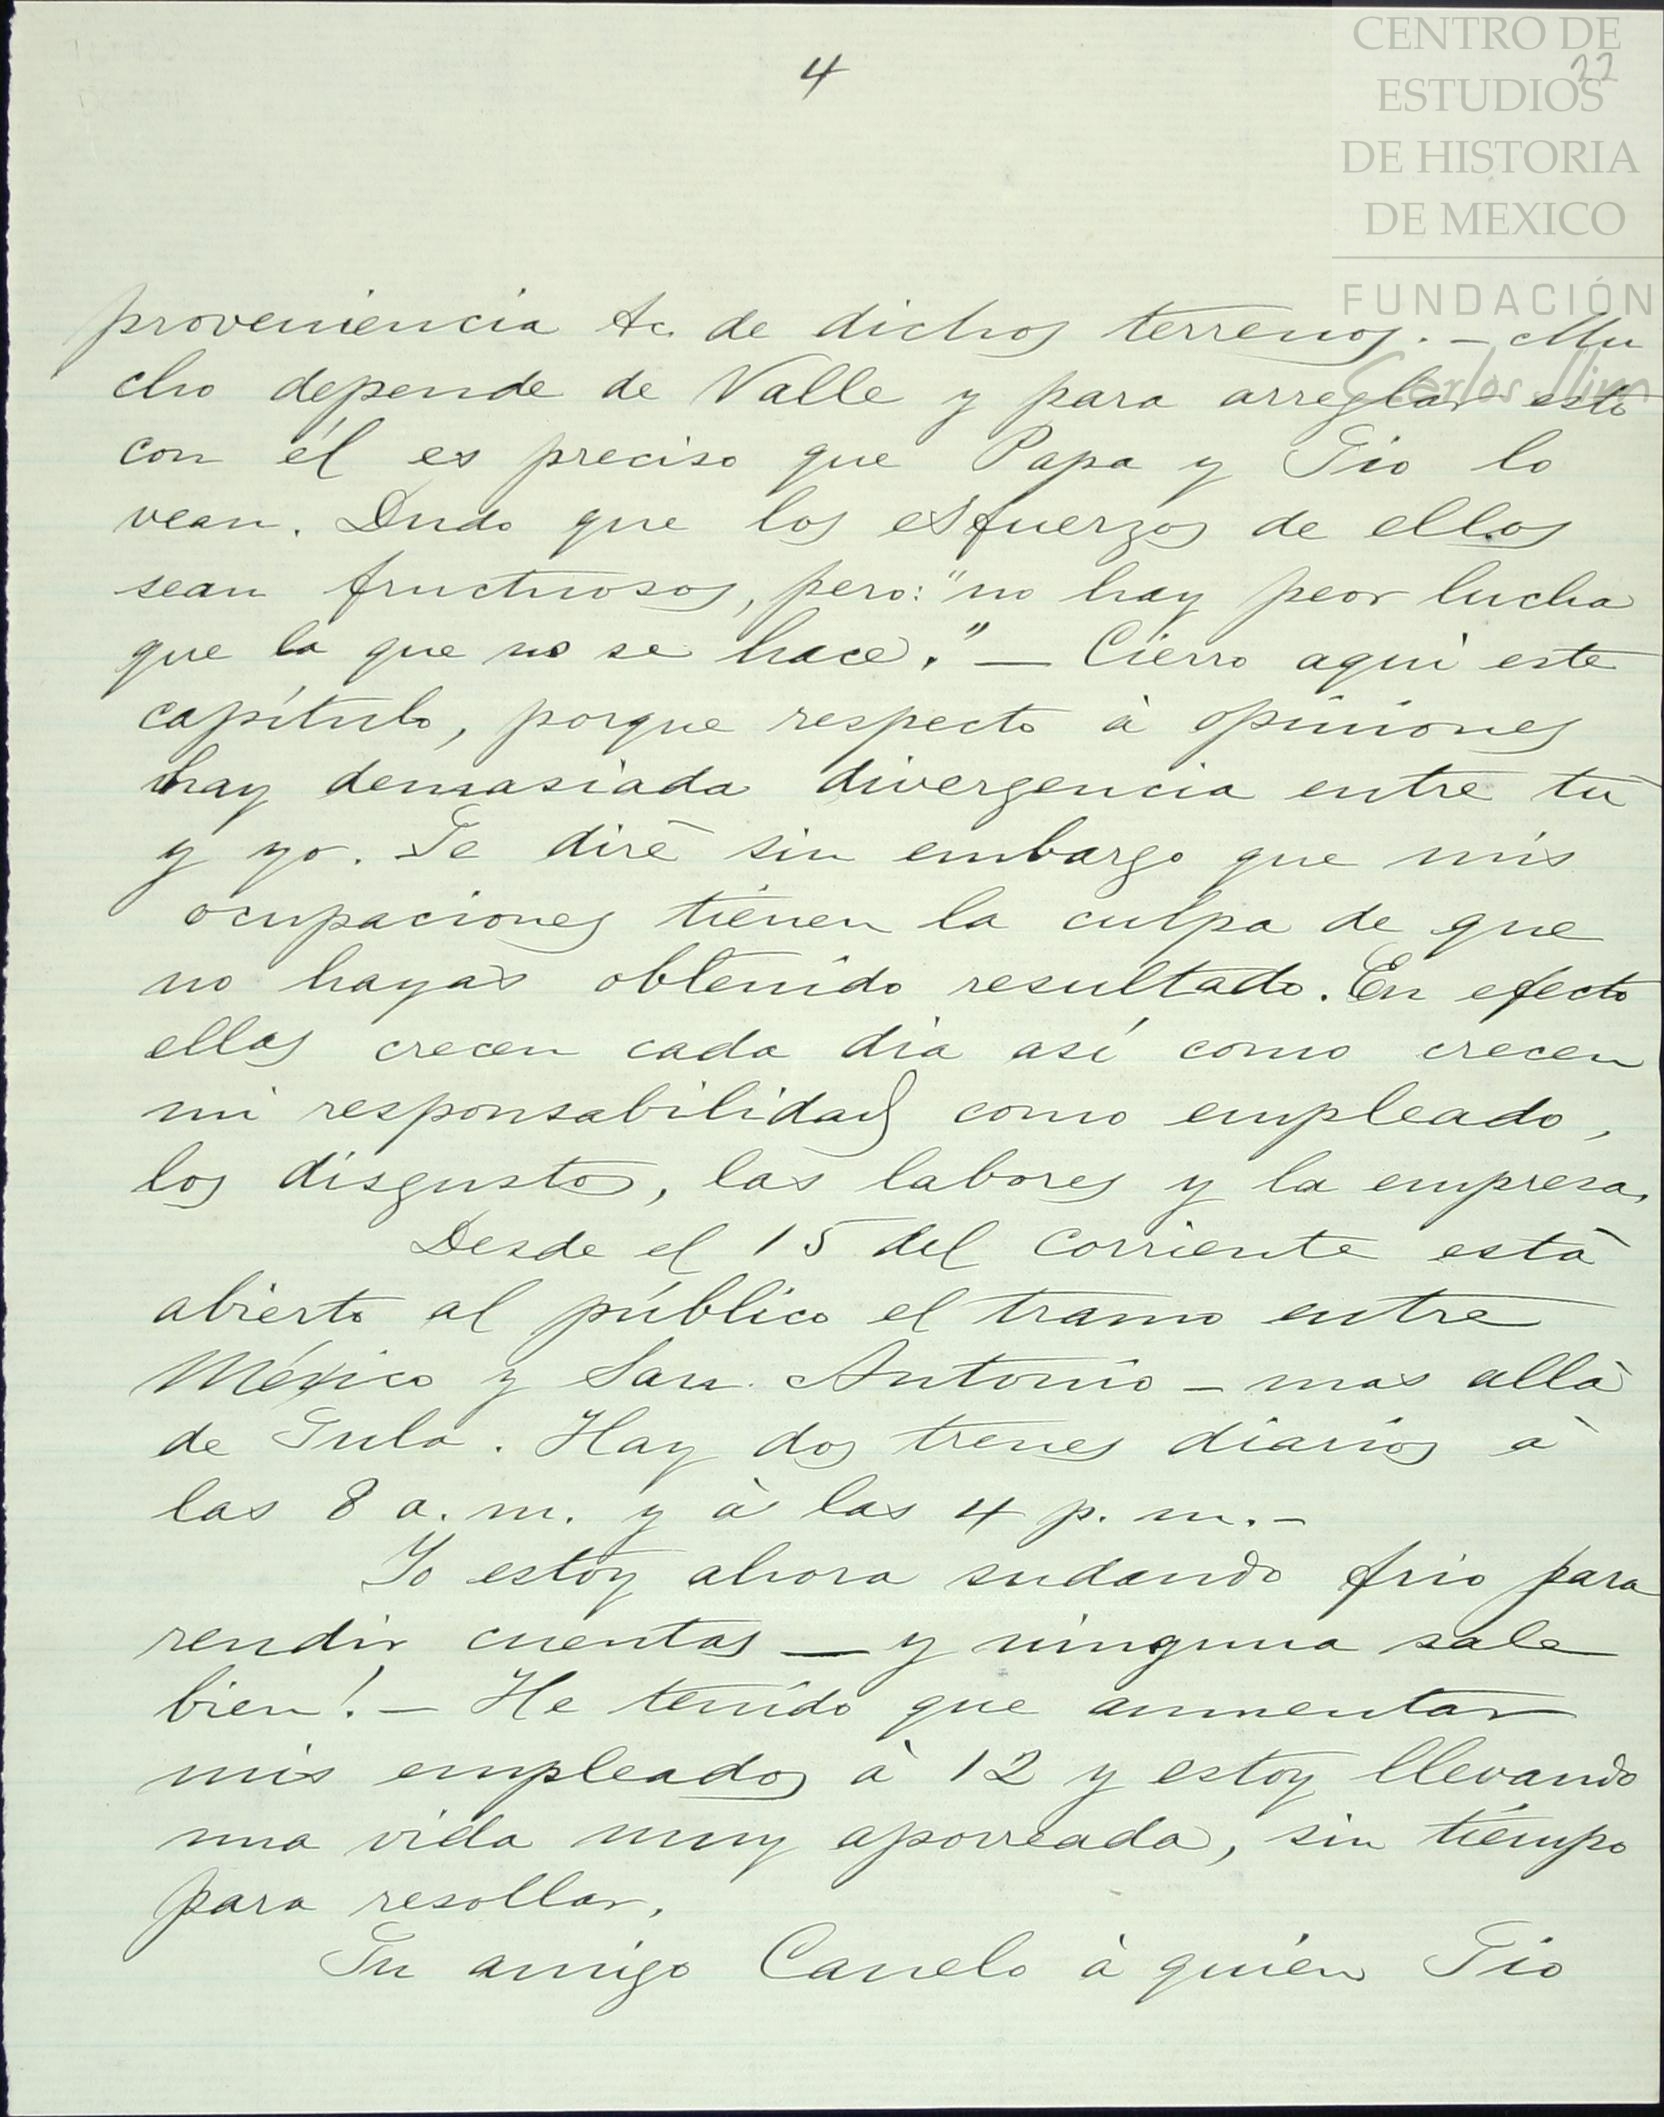 4
22
CENTRO DE
ESTUDIOS
DE HISTORIA
DE MEXICO
FUNDACIÓN
Carlos Slim
proveniencia &c. de dichos terrenos. – Mu
cho depende de Valle y para arreglar esto
con él es preciso que Papa y Tio lo
vean. Dudo que los esfuerzos de ellos
sean fructuosos, pero: "no hay peor lucha
que la que no se hace." – Cierro aquí este
capítulo, porque respecto à opiniones
hay demasiada divergencia entre tú
y yo. Te diré sin embargo que mis
ocupaciones tienen la culpa de que
no hayas obtenido resultado. En efecto
ellas crecen cada dia así como crecen
mi responsabilidad como empleado,
los disgustos, las labores y la empresa.
Desde el 15 del corriente está
abierto al público el tramo entre
México y San Antonio – mas allá
de Tula. Hay dos trenes diarios à
las 8 a. m. y à las 4 p. m. –
Yo estoy ahora sudando frio para
rendir cuentas – y ninguna sale
bien! – He tenido que aumentar
mis empleados à 12 y estoy llevando
una vida muy aporreada, sin tiempo
para resollar.
Tu amigo Canelo à quién Tio